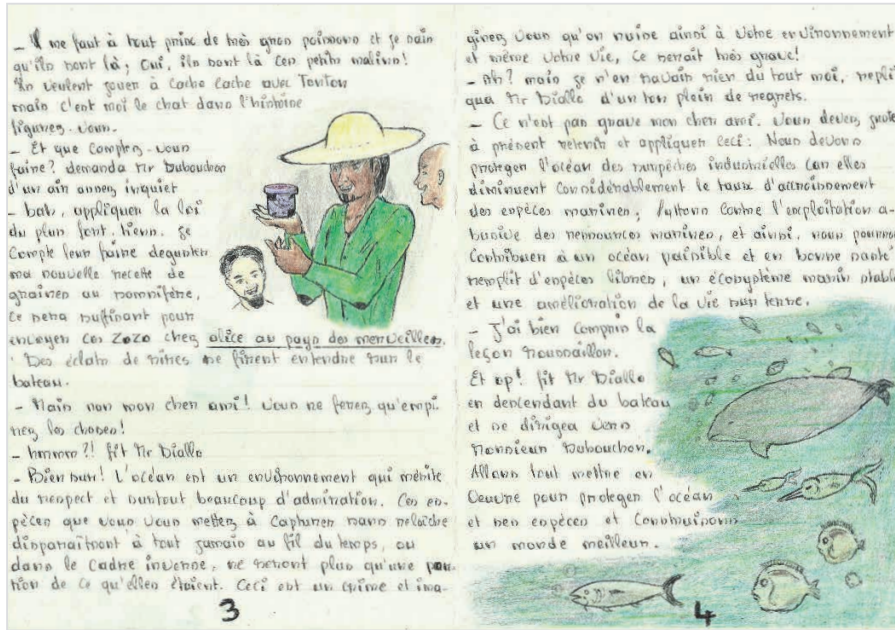 — Il me faut à tout prix de très gros poissons et je sais
qu'ils sont là; Oui, ils sont là ces petits malins!
Ils veulent jouer à cache cache avec Tonton
mais c'est moi le chat dans l'histoire
figurez-vous.
— Et que comptez-vous
faire? demanda Mr Dubouchon
d'un air assez inquiet
— bah, appliquer la loi
du plus fort. tiens. je
compte leur faire deguster
ma nouvelle recette de
graines au somnifère,
ce sera suffisant pour
envoyer ces zozo chez alice au pays des merveilles.
Des éclats de rires se firent entendre sur le
bateau.
— Mais non mon cher ami! vous ne ferez qu'empi
rez les choses!
— hmmm?! fit Mr Diallo
— Bien sur! L'océan est un environnement qui mérite
du respect et surtout beaucoup d'admiration. Ces es-
pèces que vous vous mettez à capturer sans relâche
disparaîtront à tout jamais au fil du temps, ou
dans le cadre inverse, ne seront plus qu'une por-
tion de ce qu'elles étaient. Ceci est un crime et ima-
3
ginez vous qu'on nuise ainsi à votre environnement
et même votre vie, ce serait très grave!
— Ah? mais je n'en savais rien du tout moi, repli
qua Mr Diallo d'un ton plein de regrets.
— Ce n'est pas grave mon cher ami. Vous devez juste
à présent retenir et appliquer ceci: Nous devons
proteger l'océan des surpêches industrielles car elles
diminuent considérablement le taux d'accroissement
des espèces marines; luttons contre l'exploitation a-
busive des ressources marines, et ainsi, nous pourrons
contribuer à un océan paisible et en bonne santé
remplit d'espèces libres, un écosystème marin stable
et une amélioration de la vie sur terre.
— J'ai bien compris la
leçon moussaillon.
Et op! fit Mr Diallo
en descendant du bateau
et se dirigea vers
Monsieur Dubouchon.
Allons tout mettre en
oeuvre pour proteger l'océan
et ses espèces et construisons
un monde meilleur.
4